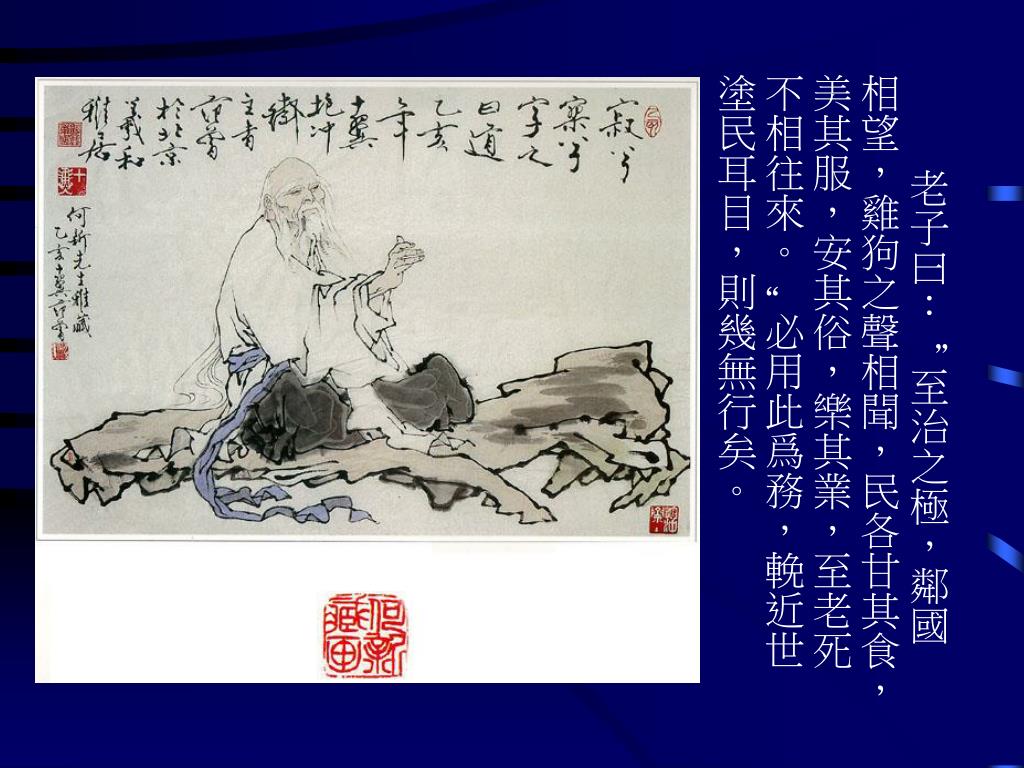 老子曰：”至治之極，鄰國
相望，雞狗之聲相聞，民各甘其食，
美其服，安其俗，樂其業，至老死
不相往來。“必用此爲務，輓近世
塗民耳目，則幾無行矣。
寂兮
寥兮
字之
曰道
乙亥
年
十翼
抱冲
齋
主者
范曾
於北京
羲和
雅居
何新先生雅藏
乙亥十翼范曾
何新
藏画